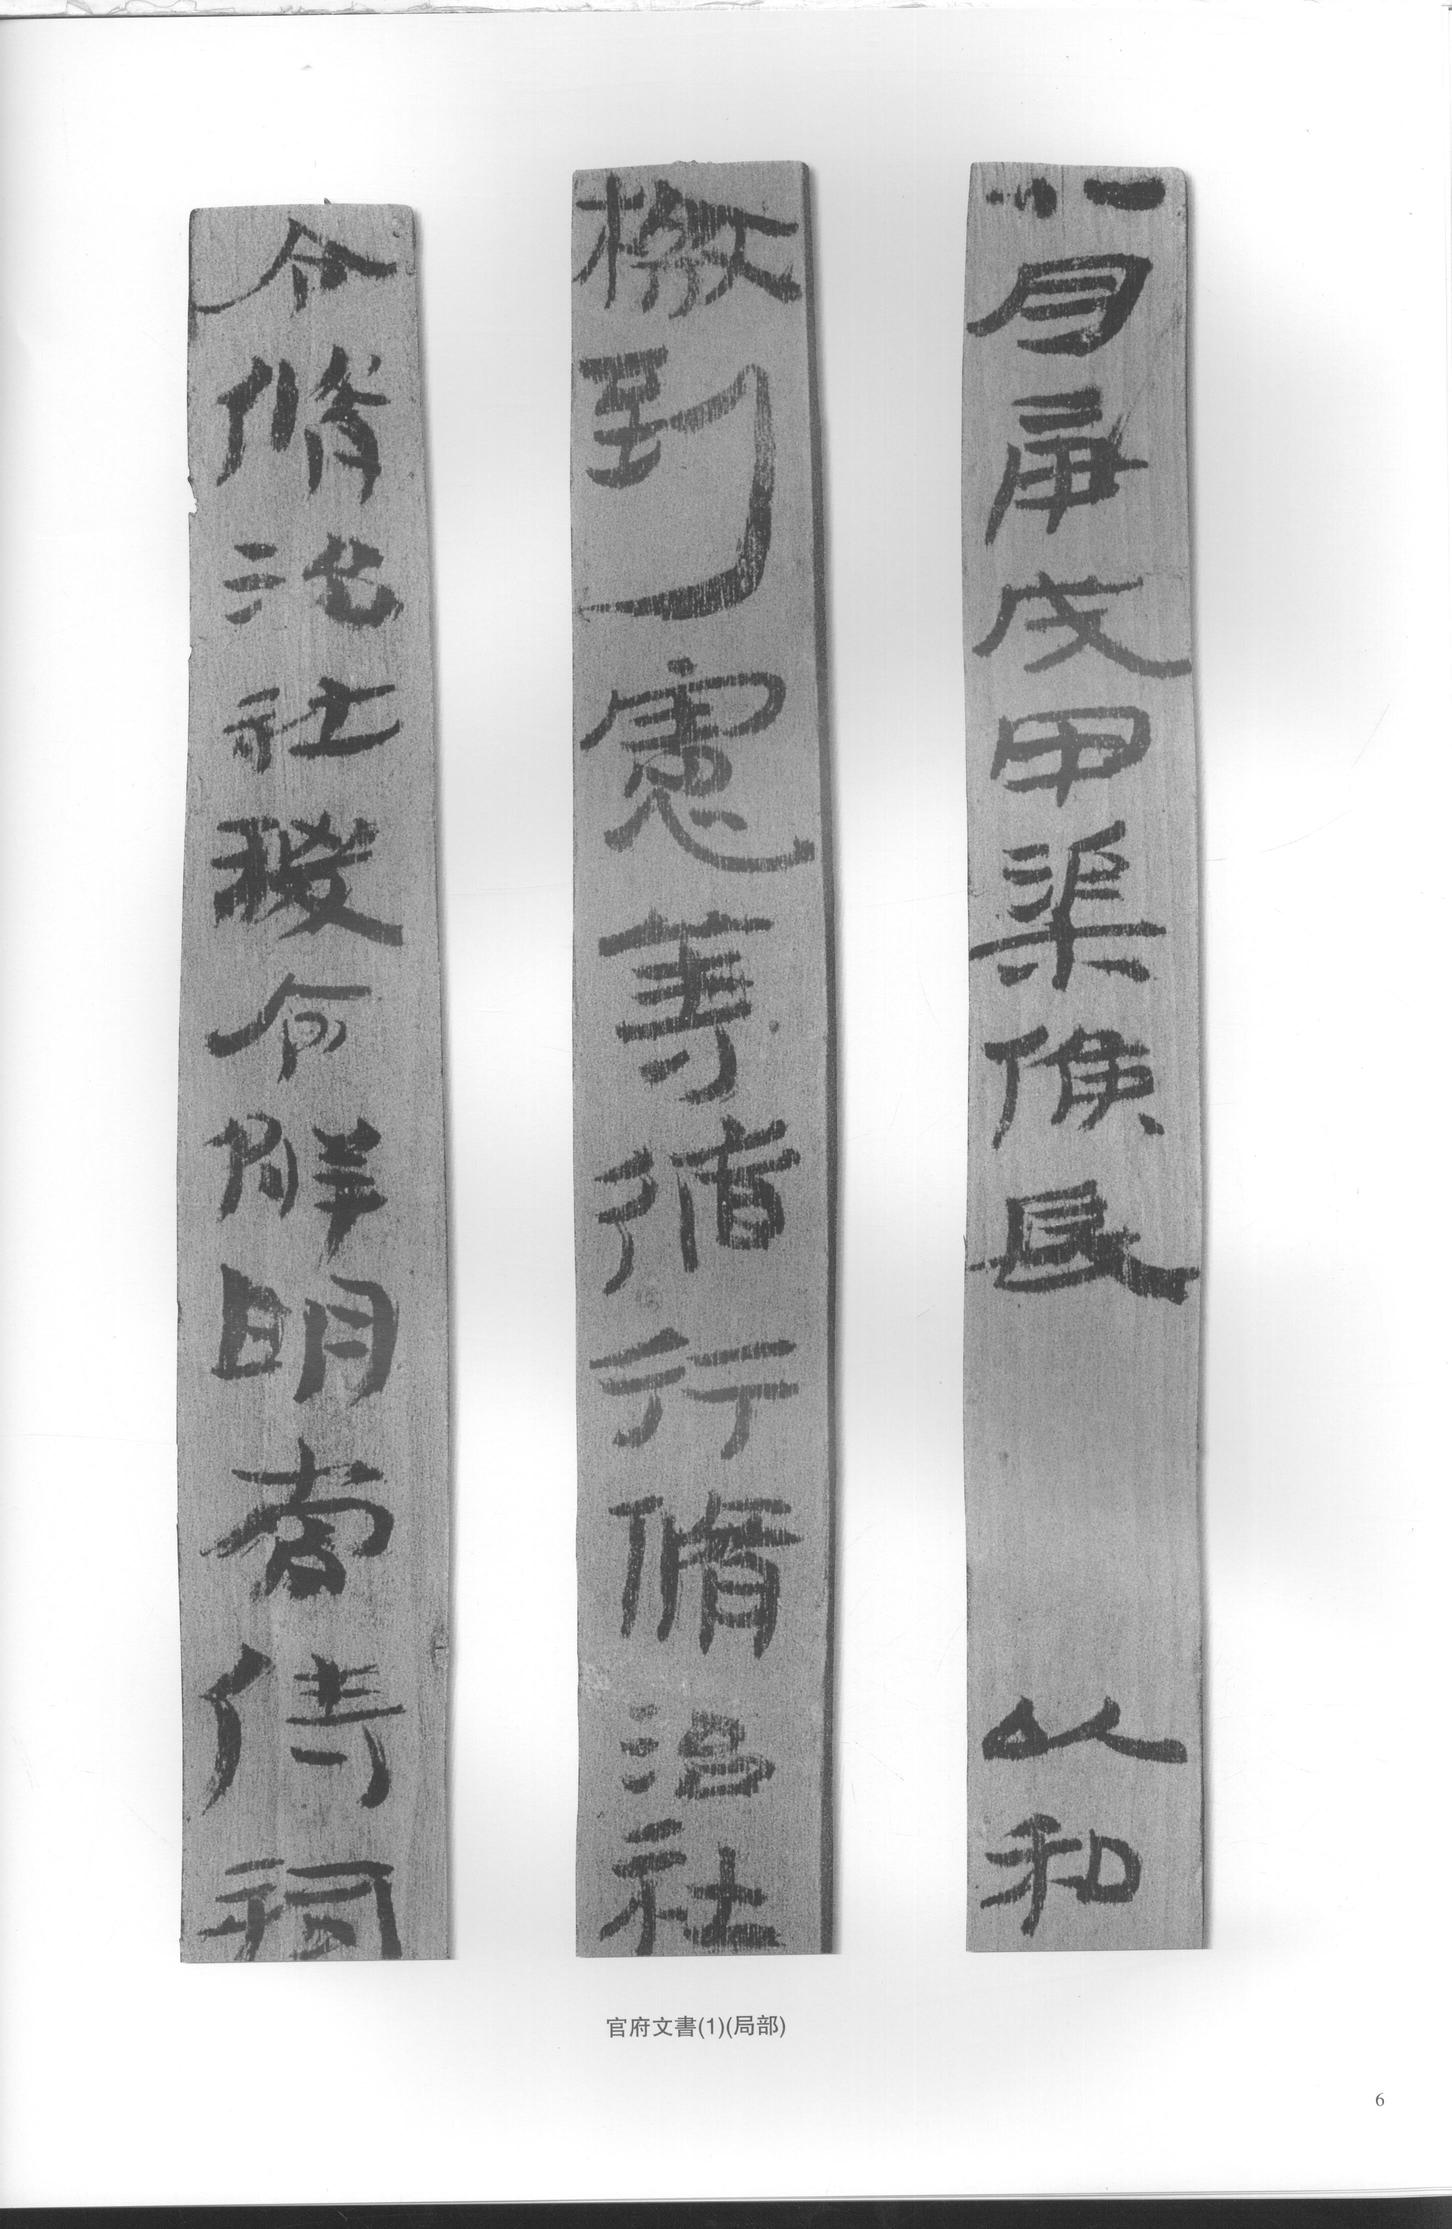 八月庚戌甲渠候長　以私
檄到憲等循行脩治社
令脩治社稷令鮮明當侍祠
官府文書(1)(局部)
6